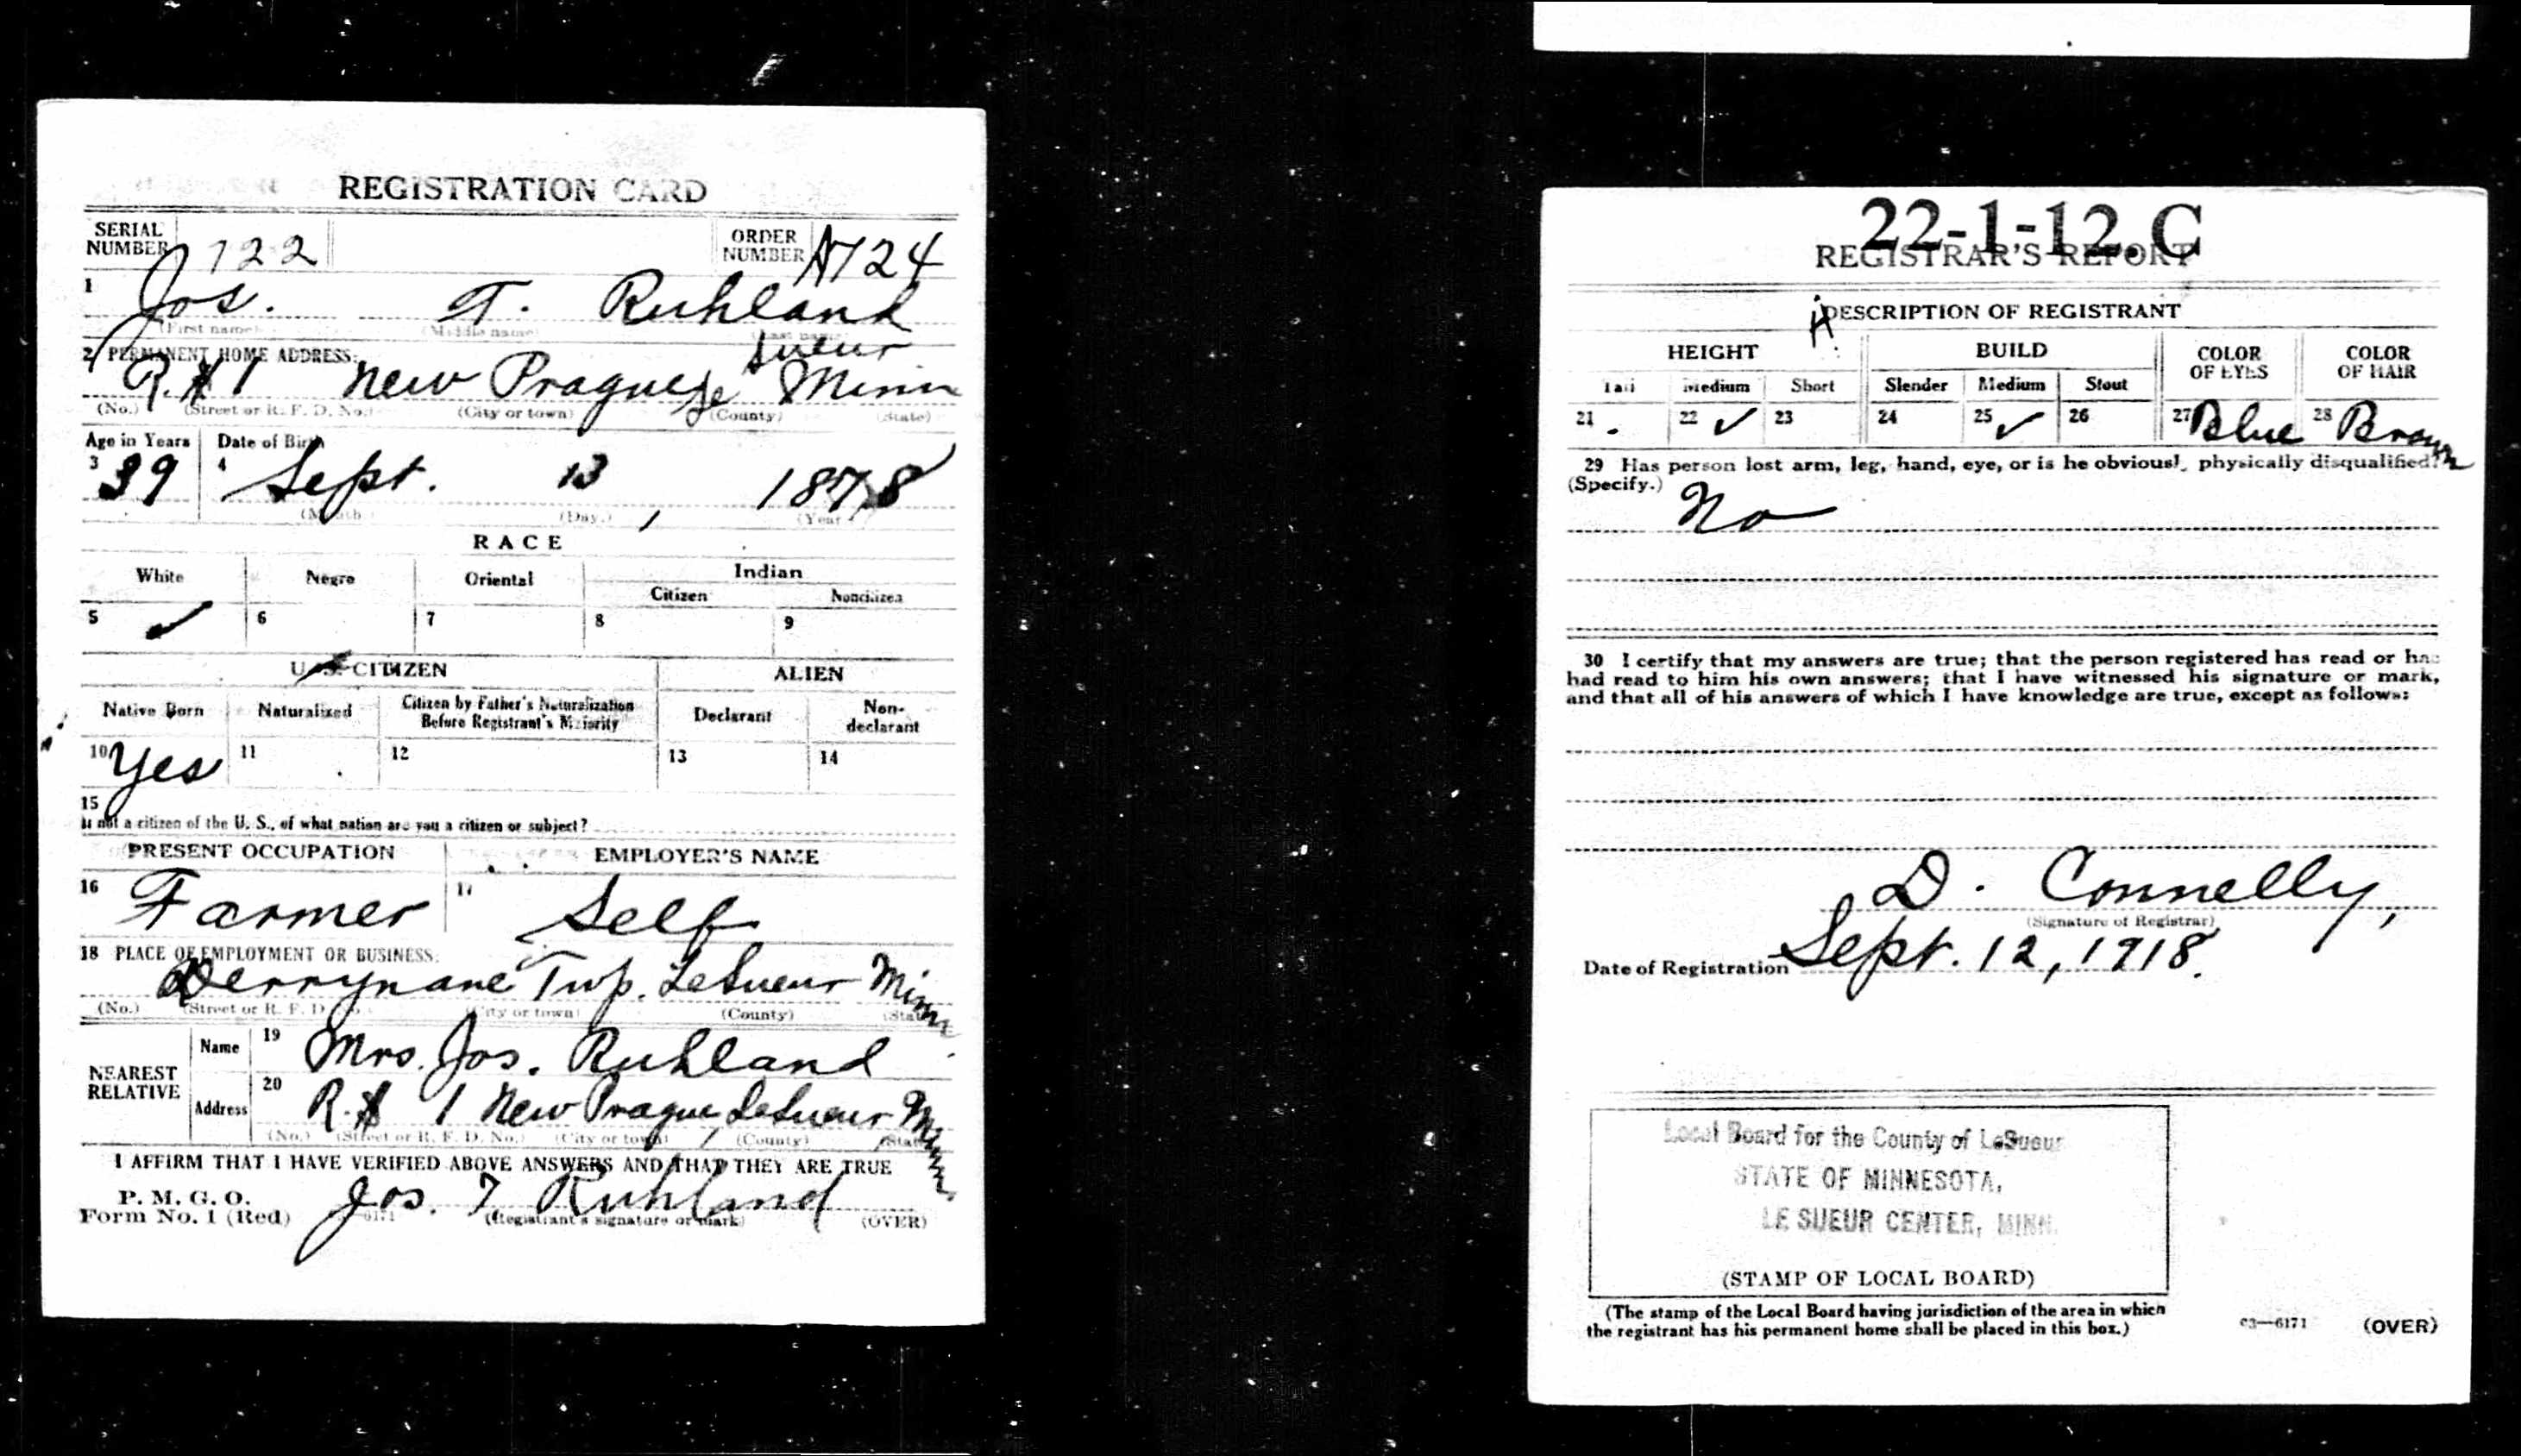 REGISTRATION CARD
SERIAL NUMBER 722 ORDER NUMBER A724
1 Jos. T. Ruhland
(First name) (Middle name) (Last name)
2 PERMANENT HOME ADDRESS: Sueur
R. # 1 New Prague Le Minn
(No.) (Street or R. F. D. No.) (City or town) (County) (State)
Age in Years Date of Birth
3 39 4 Sept. 13, 1878
(Month.) (Day.) (Year)
RACE
White Negro Oriental Indian
Citizen Noncitizen
5 ✓ 6 7 8 9
U. S. CITIZEN ALIEN
Native Born Naturalized Citizen by Father's Naturalization Before Registrant's Majority Declarant Non-declarant
10 Yes 11 12 13 14
15
If not a citizen of the U. S., of what nation are you a citizen or subject?
PRESENT OCCUPATION EMPLOYER'S NAME
16 Farmer 17 Self
18 PLACE OF EMPLOYMENT OR BUSINESS:
Derrynane Twp. LeSueur Minn
(No.) (Street or R. F. D. No.) (City or town) (County) (State)
NEAREST RELATIVE
Name 19 Mrs. Jos. Ruhland
Address 20 R. # 1 New Prague, LeSueur Minn.
(No.) (Street or R. F. D. No.) (City or town) (County) (State)
I AFFIRM THAT I HAVE VERIFIED ABOVE ANSWERS AND THAT THEY ARE TRUE
P. M. G. O.
Form No. 1 (Red) Jos. T Ruhland
6171 (Registrant's signature or mark) (OVER)
22-1-12. C
REGISTRAR'S REPORT
DESCRIPTION OF REGISTRANT
HEIGHT BUILD COLOR OF EYES COLOR OF HAIR
Tall Medium Short Slender Medium Stout
21 22 ✓ 23 24 25 ✓ 26 27 Blue 28 Brown
29 Has person lost arm, leg, hand, eye, or is he obviously physically disqualified?
(Specify.) No
30 I certify that my answers are true; that the person registered has read or has
had read to him his own answers; that I have witnessed his signature or mark,
and that all of his answers of which I have knowledge are true, except as follows:
D. Connelly,
(Signature of Registrar)
Date of Registration Sept. 12, 1918.
Local Board for the County of LeSueur
STATE OF MINNESOTA,
LE SUEUR CENTER, MINN.
(STAMP OF LOCAL BOARD)
(The stamp of the Local Board having jurisdiction of the area in which
the registrant has his permanent home shall be placed in this box.)
03—6171 (OVER)